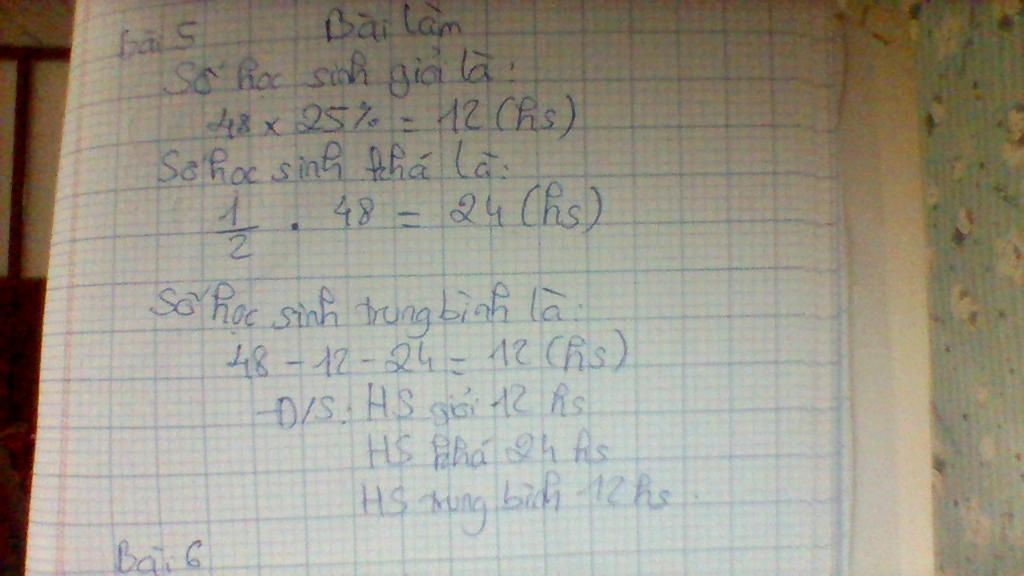 Bài 5 Bài làm
Số học sinh giỏi là:
48 x 25% = 12 (hs)
Số học sinh khá là:
1/2 . 48 = 24 (hs)
Số học sinh trung bình là:
48 - 12 - 24 = 12 (hs)
Đ/S: HS giỏi 12 hs
HS khá 24 hs
HS trung bình 12 hs.
Bài 6